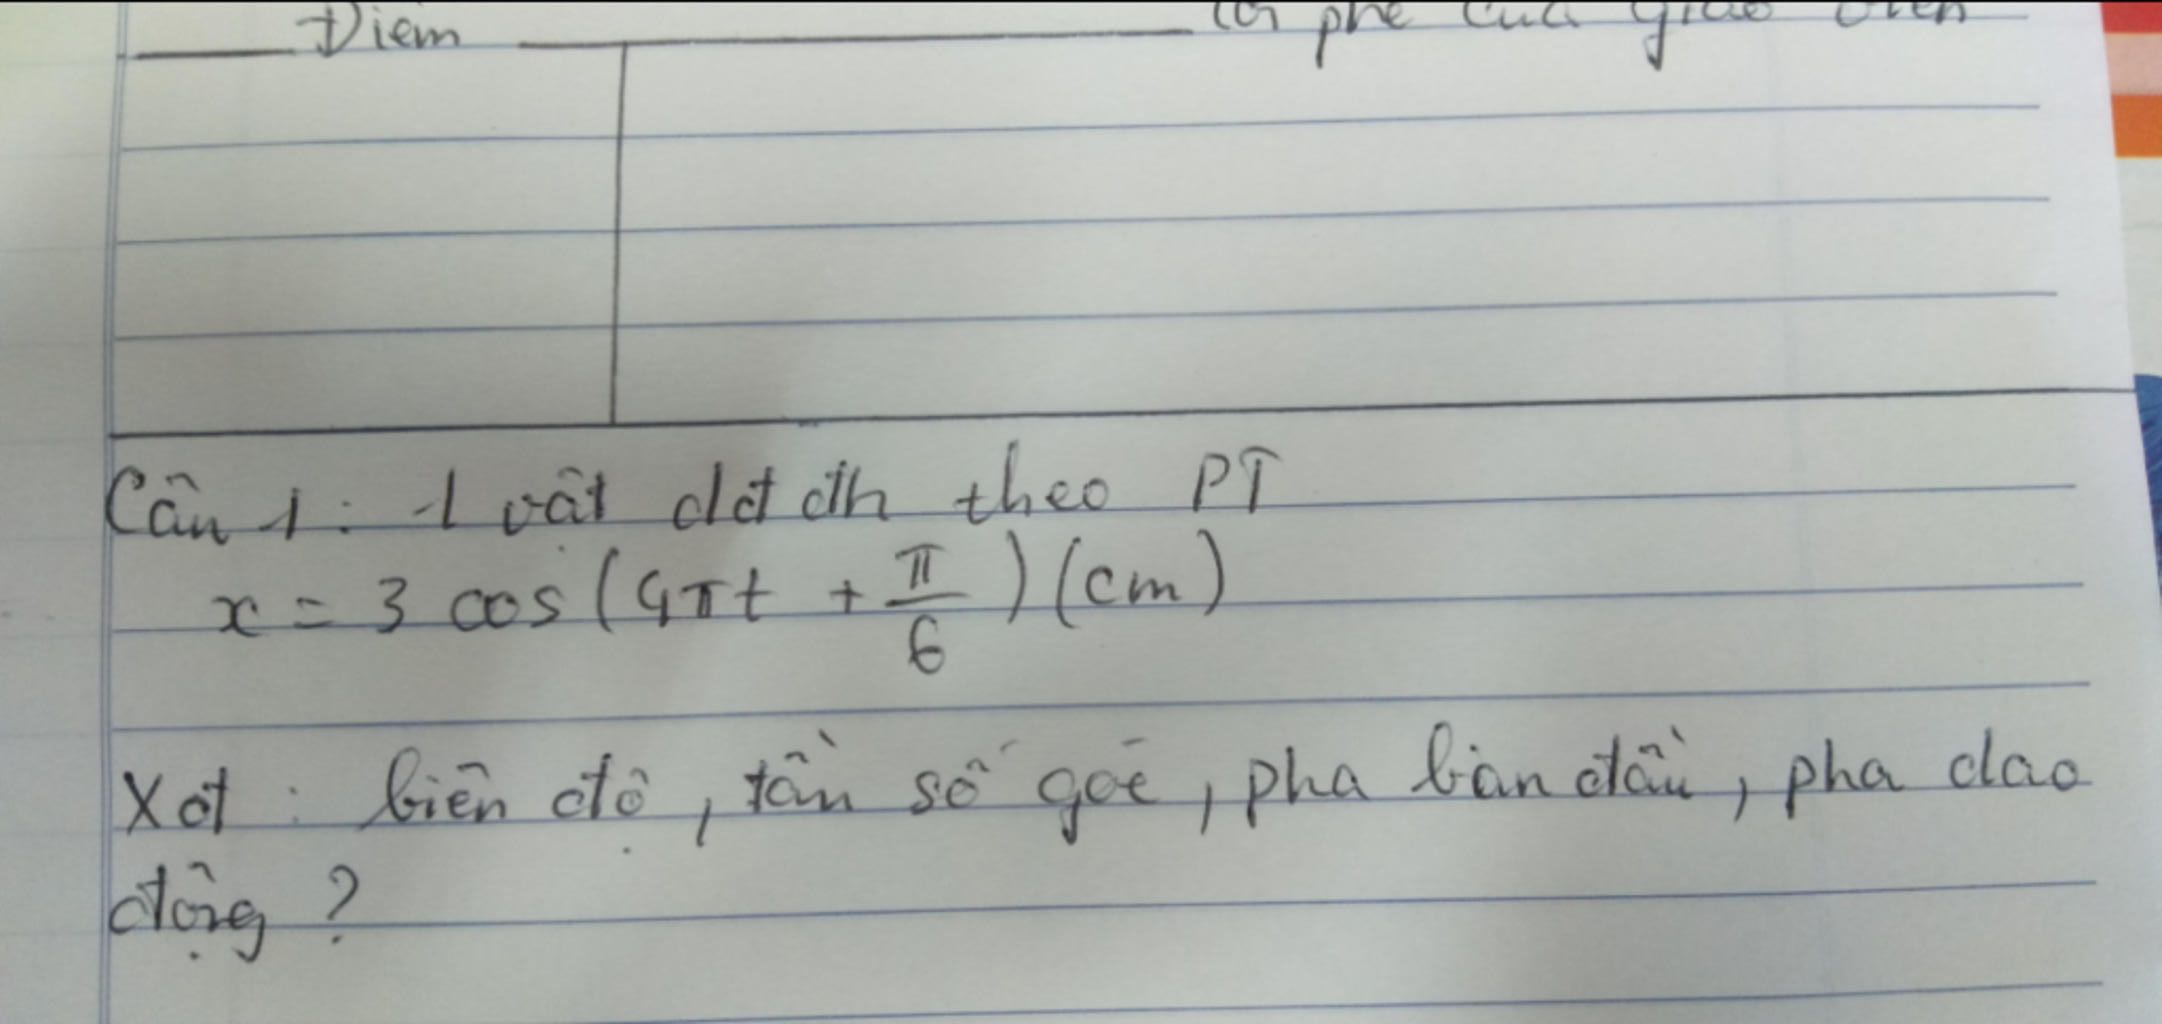 Điểm Lời phê của giáo viên
Câu 1: 1 vật dđ đh theo PT
x = 3 cos (4πt + π/6) (cm)
Xđ : biên độ, tần số góc, pha ban đầu, pha dao
động ?